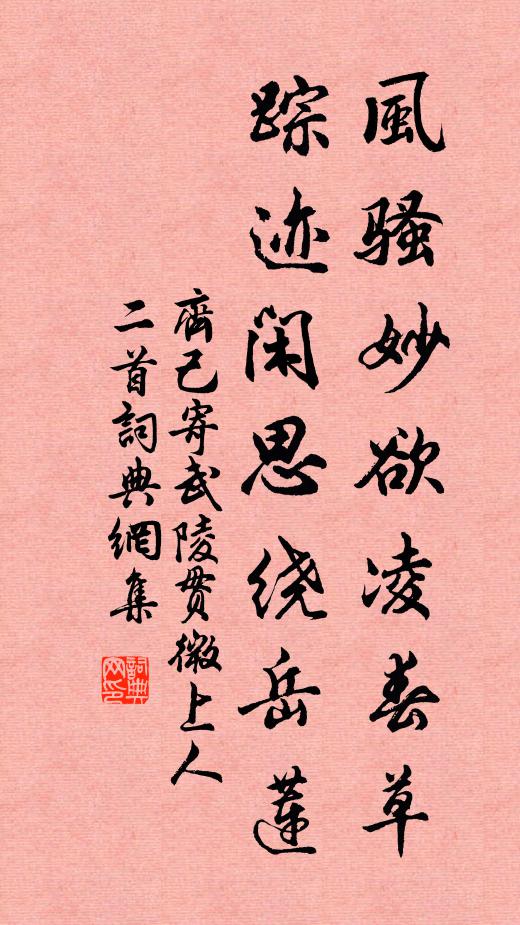 風騷妙欲凌春草
踪迹闲思绕岳蓮
齊己寄武陵贯微上人
二首詞典網集
詞典网印